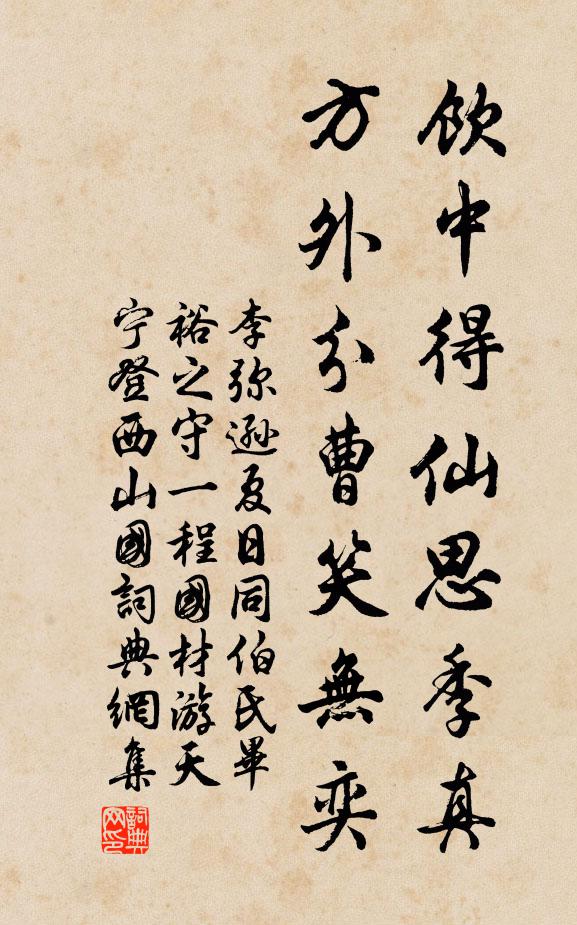 飲中得仙思季真
方外分曹笑無奕
李弥遜夏日同伯氏畢
裕之守一程國材游天
宁登西山國詞典網集
詞典
网印